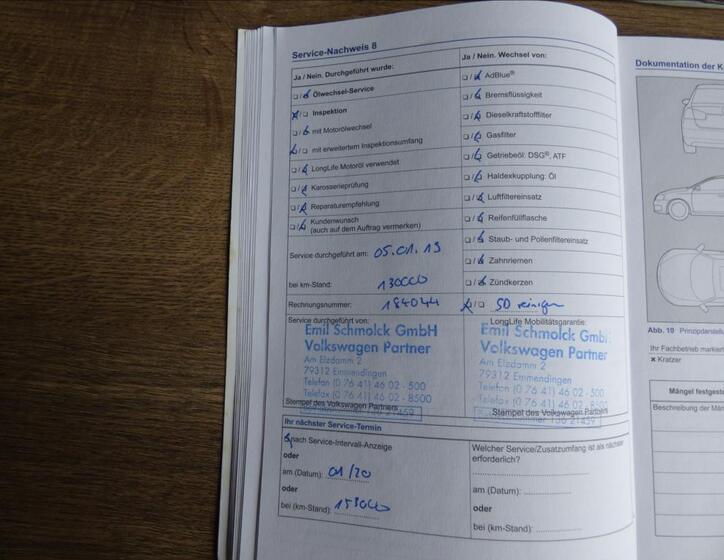 Service-Nachweis 8
Ja / Nein. Durchgeführt wurde:
Ölwechsel-Service
Inspektion
mit Motorölwechsel
mit erweitertem Inspektionsumfang
LongLife Motoröl verwendet
Karosserieprüfung
Reparaturempfehlung
Kundenwunsch
(auch auf dem Auftrag vermerken)
Service durchgeführt am: 05.01.19
bei km-Stand: 130000
Rechnungsnummer: 184044
Service durchgeführt von:
Emil Schmolck GmbH
Volkswagen Partner
Am Elzdamm 2
79312 Emmendingen
Telefon (0 76 41) 46 02 - 500
Telefax (0 76 41) 46 02 - 8500
Stempel des Volkswagen Partners
Ja / Nein. Wechsel von:
AdBlue®
Bremsflüssigkeit
Dieselkraftstofffilter
Gasfilter
Getriebeöl: DSG®, ATF
Haldexkupplung: Öl
Luftfiltereinsatz
Reifenfüllflasche
Staub- und Pollenfiltereinsatz
Zahnriemen
Zündkerzen
SD reinigen
LongLife Mobilitätsgarantie:
Emil Schmolck Gmb
Volkswagen Partner
Am Elzdamm 2
79312 Emmendingen
Telefon (0 76 41) 46 02 - 500
Telefax (0 76 41) 46 02 - 850
Stempel des Volkswagen Partners
Ihr nächster Service-Termin
nach Service-Intervall-Anzeige
oder
am (Datum): 01/20
oder
bei (km-Stand): 153000
Welcher Service/Zusatzumfang ist als nächster
erforderlich?
am (Datum):
oder
bei (km-Stand):
Dokumentation der K
Abb. 10 Prinzipdarstell
Ihr Fachbetrieb markiert
x Kratzer
Mängel festgeste
Beschreibung der Män